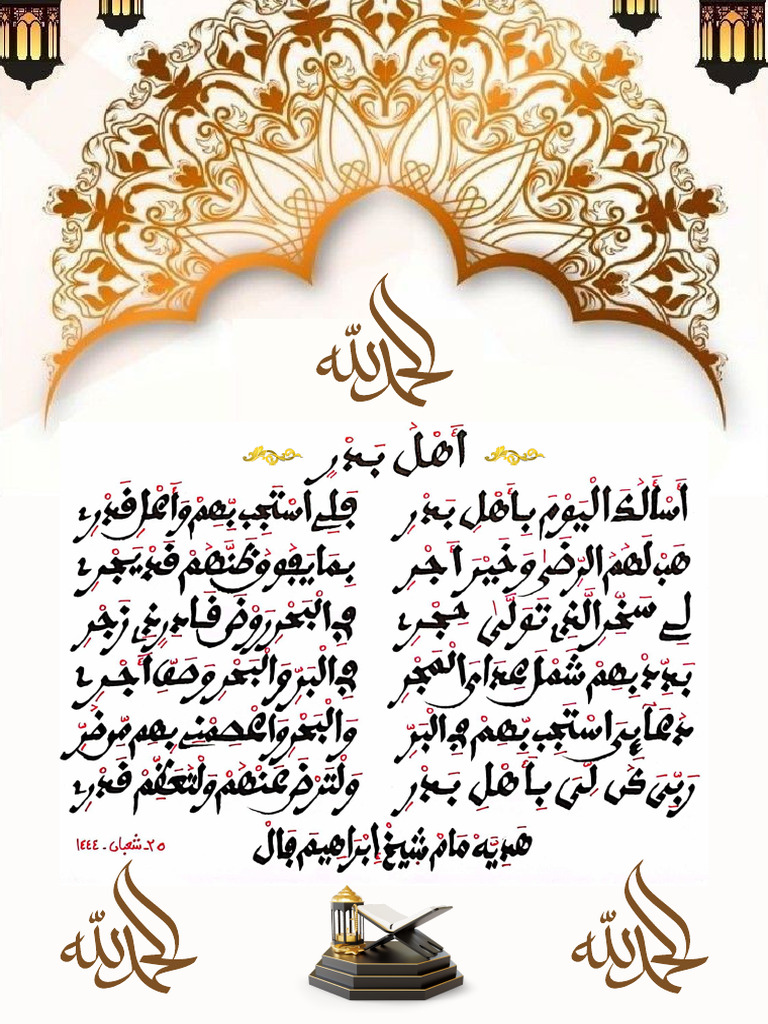 الحمد لله
أَهْلُ بَدْرٍ
أَسْأَلُكَ الْيَوْمَ بِأَهْلِ بَدْرِ فَلِي اسْتَجِبْ بِهِمْ وَأَعْلِ قَدْرِي
هَبْ لَهُمُ الرِّضَى وَخَيْرَ أَجْرِ بِمَا يَفُوقُ ظَنَّهُمْ قَدْ يَجْرِي
لِي سَخِّرِ الَّذِي تَوَلَّى حِجْرِي فِي الْبَحْرِ زَجْرِ
بَدِّدْ بِهِمْ شَمْلَ عِدَايَ الْفُجْرِ فِي الْبَرِّ وَالْبَحْرِ أَجْرِي
دُعَاءِيَ اسْتَجِبْ بِهِمْ فِي الْبَرِّ وَالْبَحْرِ وَاعْصِمْنِي بِهِمْ مِّن ضُرِّ
رَبِّيَ كُن لِّي بِأَهْلِ بَدْرِ وَلْتَرْضَ عَنْهُمْ وَلْتُعَظِّمْ قَدْرِي
هَدِيَّةْ مَامْ شِيخْ إِبْرَاهِيمَ فَالْ
٢٥ـ شعبان ـ ١٤٤٤
الحمد لله
الحمد لله